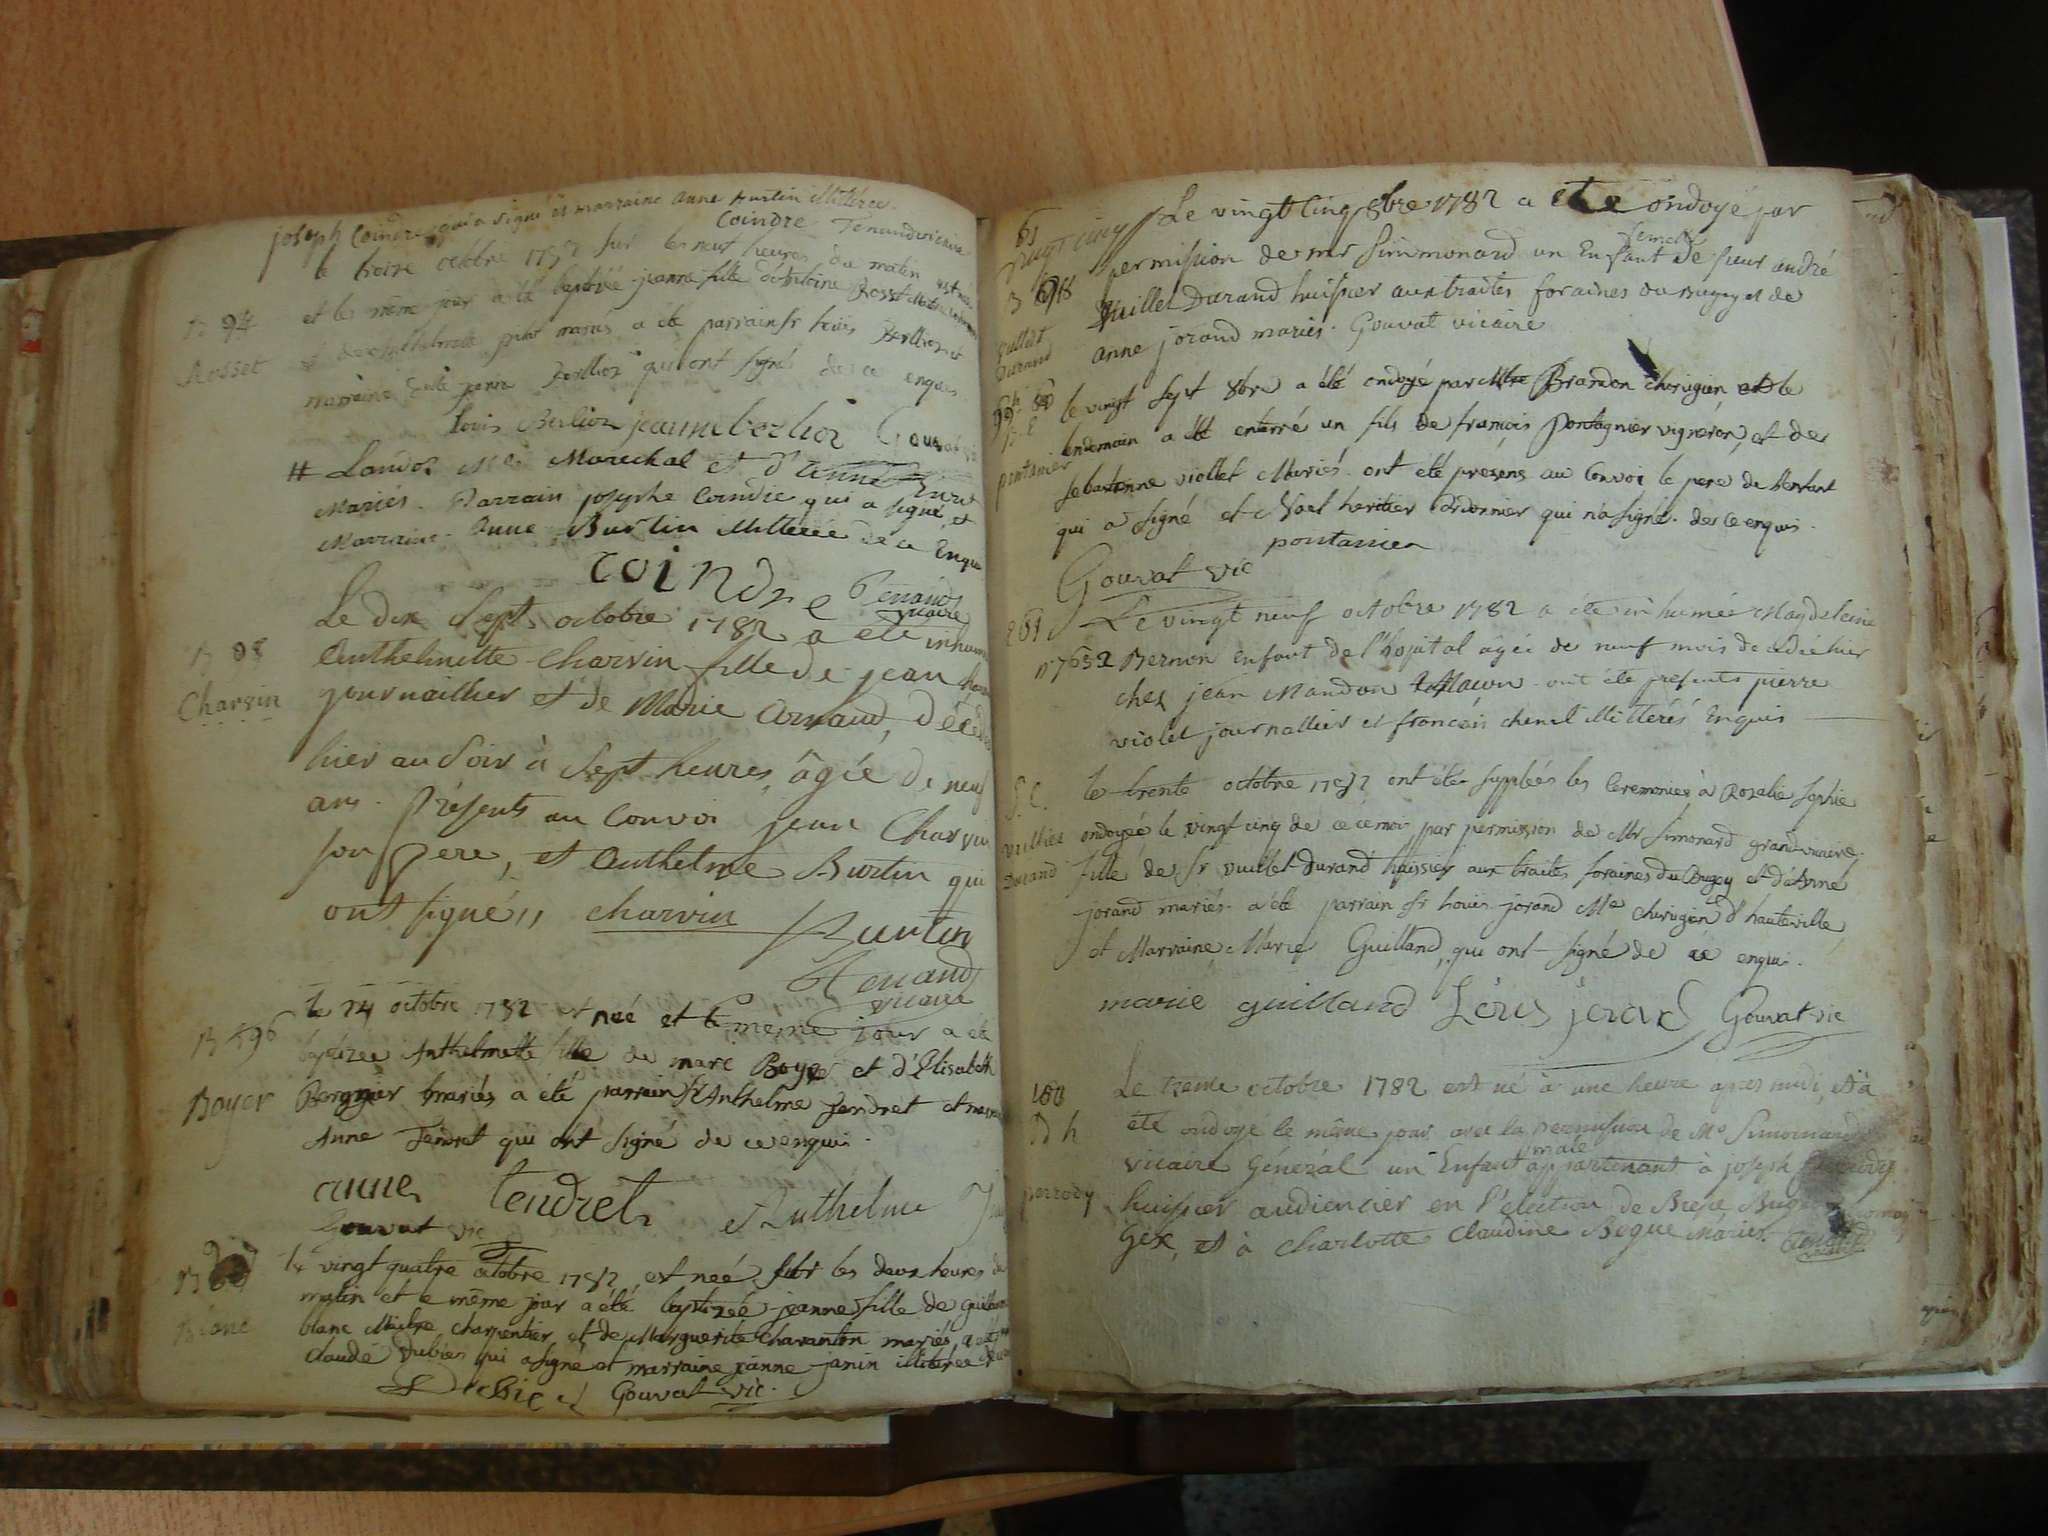 joseph Coindre qui a signé et marraine anne Burtin illitérée.
Coindre Tenand vicaire
le treize octobre 1782 sur les neuf heures du matin est née
et le même jour a été baptisée jeanne fille d'Antoine Rosset
mariés a été parrain sr loüis Berllioz et
marraine jeanne Berllioz qui ont signé de ce enquis
B 94
Rosset
louis Berlioz jeanne berlioz Gouvat
# Landoz Me Marechal et d'
Mariés. Parrain josephe Coindre qui a signé, et
Marraine Anne Burtin illitérée de ce Enquis
coindre Tenand
vicaire
Le dix sept octobre 1782 a été inhumée
Anthelmette Charvin fille de jean
journaillier et de Marie Arnaud, décédée
hier au soir à sept heures, âgée de neuf
ans. Présents au Convoi jean Charvin
son pere, et Anthelme Burtin qui
ont signé,, charvin Burtin
Tenand
vicaire
B 95
Charvin
le 24 octobre 1782 est née et le meme jour a été
baptizee Anthelmette fille de marc Boyer et d'Elisabeth
mariés a été parrain sr Anthelme Tendret et marraine
Anne Tendret qui ont signé de ce enquis.
B 96
Boyer
anne tendret Anthelme
Gouvat vic
le vingt quatre octobre 1782 est neé sur les deux heures du
matin et le même jour a été baptizeé jeanne fille de guillaume
blanc Maitre charpentier, et de Marguerite Charanton mariés a été
claude Dubies qui a signé et marraine jeanne janin illiterée
Gouvat vic.
B
Blanc
Le vingt cinq 8bre 1782 a été ondoyé par
permission de mr Simmonard un Enfant femelle de sieur andré
Vuillet Durand huissier aux traites foraines du Bugey et de
anne jorand mariés. Gouvat vicaire
vingt cinq
B 98
Vuillet
Durand
le vingt sept 8bre a été ondoyé par Mtre Brandon chirugien et le
lendemain a été enterré un fils de françois Pontagnier vigneron, et de
sebastienne viollet Mariés. ont été presens au Convoi le pere de l'enfant
qui a signé et Noel heritier Cordonnier qui n'a signé. de ce enquis.
pontanier
pontanier
Gouvat vic
Le vingt neuf octobre 1782 a été inhumée Magdeleine
n° 7652 Bernon enfant de l'hopital agée de neuf mois decedée hier
chez jean Mandon ont été presents pierre
violet journallier et francois chenel illitterés Enquis
le trente octobre 1782 ont été suppleés les Ceremonies à Rozalie Sophie
ondoyeé le vingt cinq de ce mois par permission de Mr Simonard grand-vicaire,
fille de sr vuillet-Durand huissier aux traites foraines du Bugey et d'Anne
jorand mariés. a été parrain sr loüis jorand Me chirugien d'hauteville,
et Marraine Marie Guilland, qui ont signé de ce enquis.
S. C.
vuillet
Durand
marie guilland Loüis jorand Gouvat vic
Le treme octobre 1782 est né à une heure apres midi, et à
été ondoyé le même jour avec la permission de Mr Simonard
vicaire Général un Enfant male appartenant à joseph
huissier audiencier en l'élection de Bresse Bugey
Gex, et à Charlotte Claudine Begue Mariés. Tenand
vicaire
100
perrody